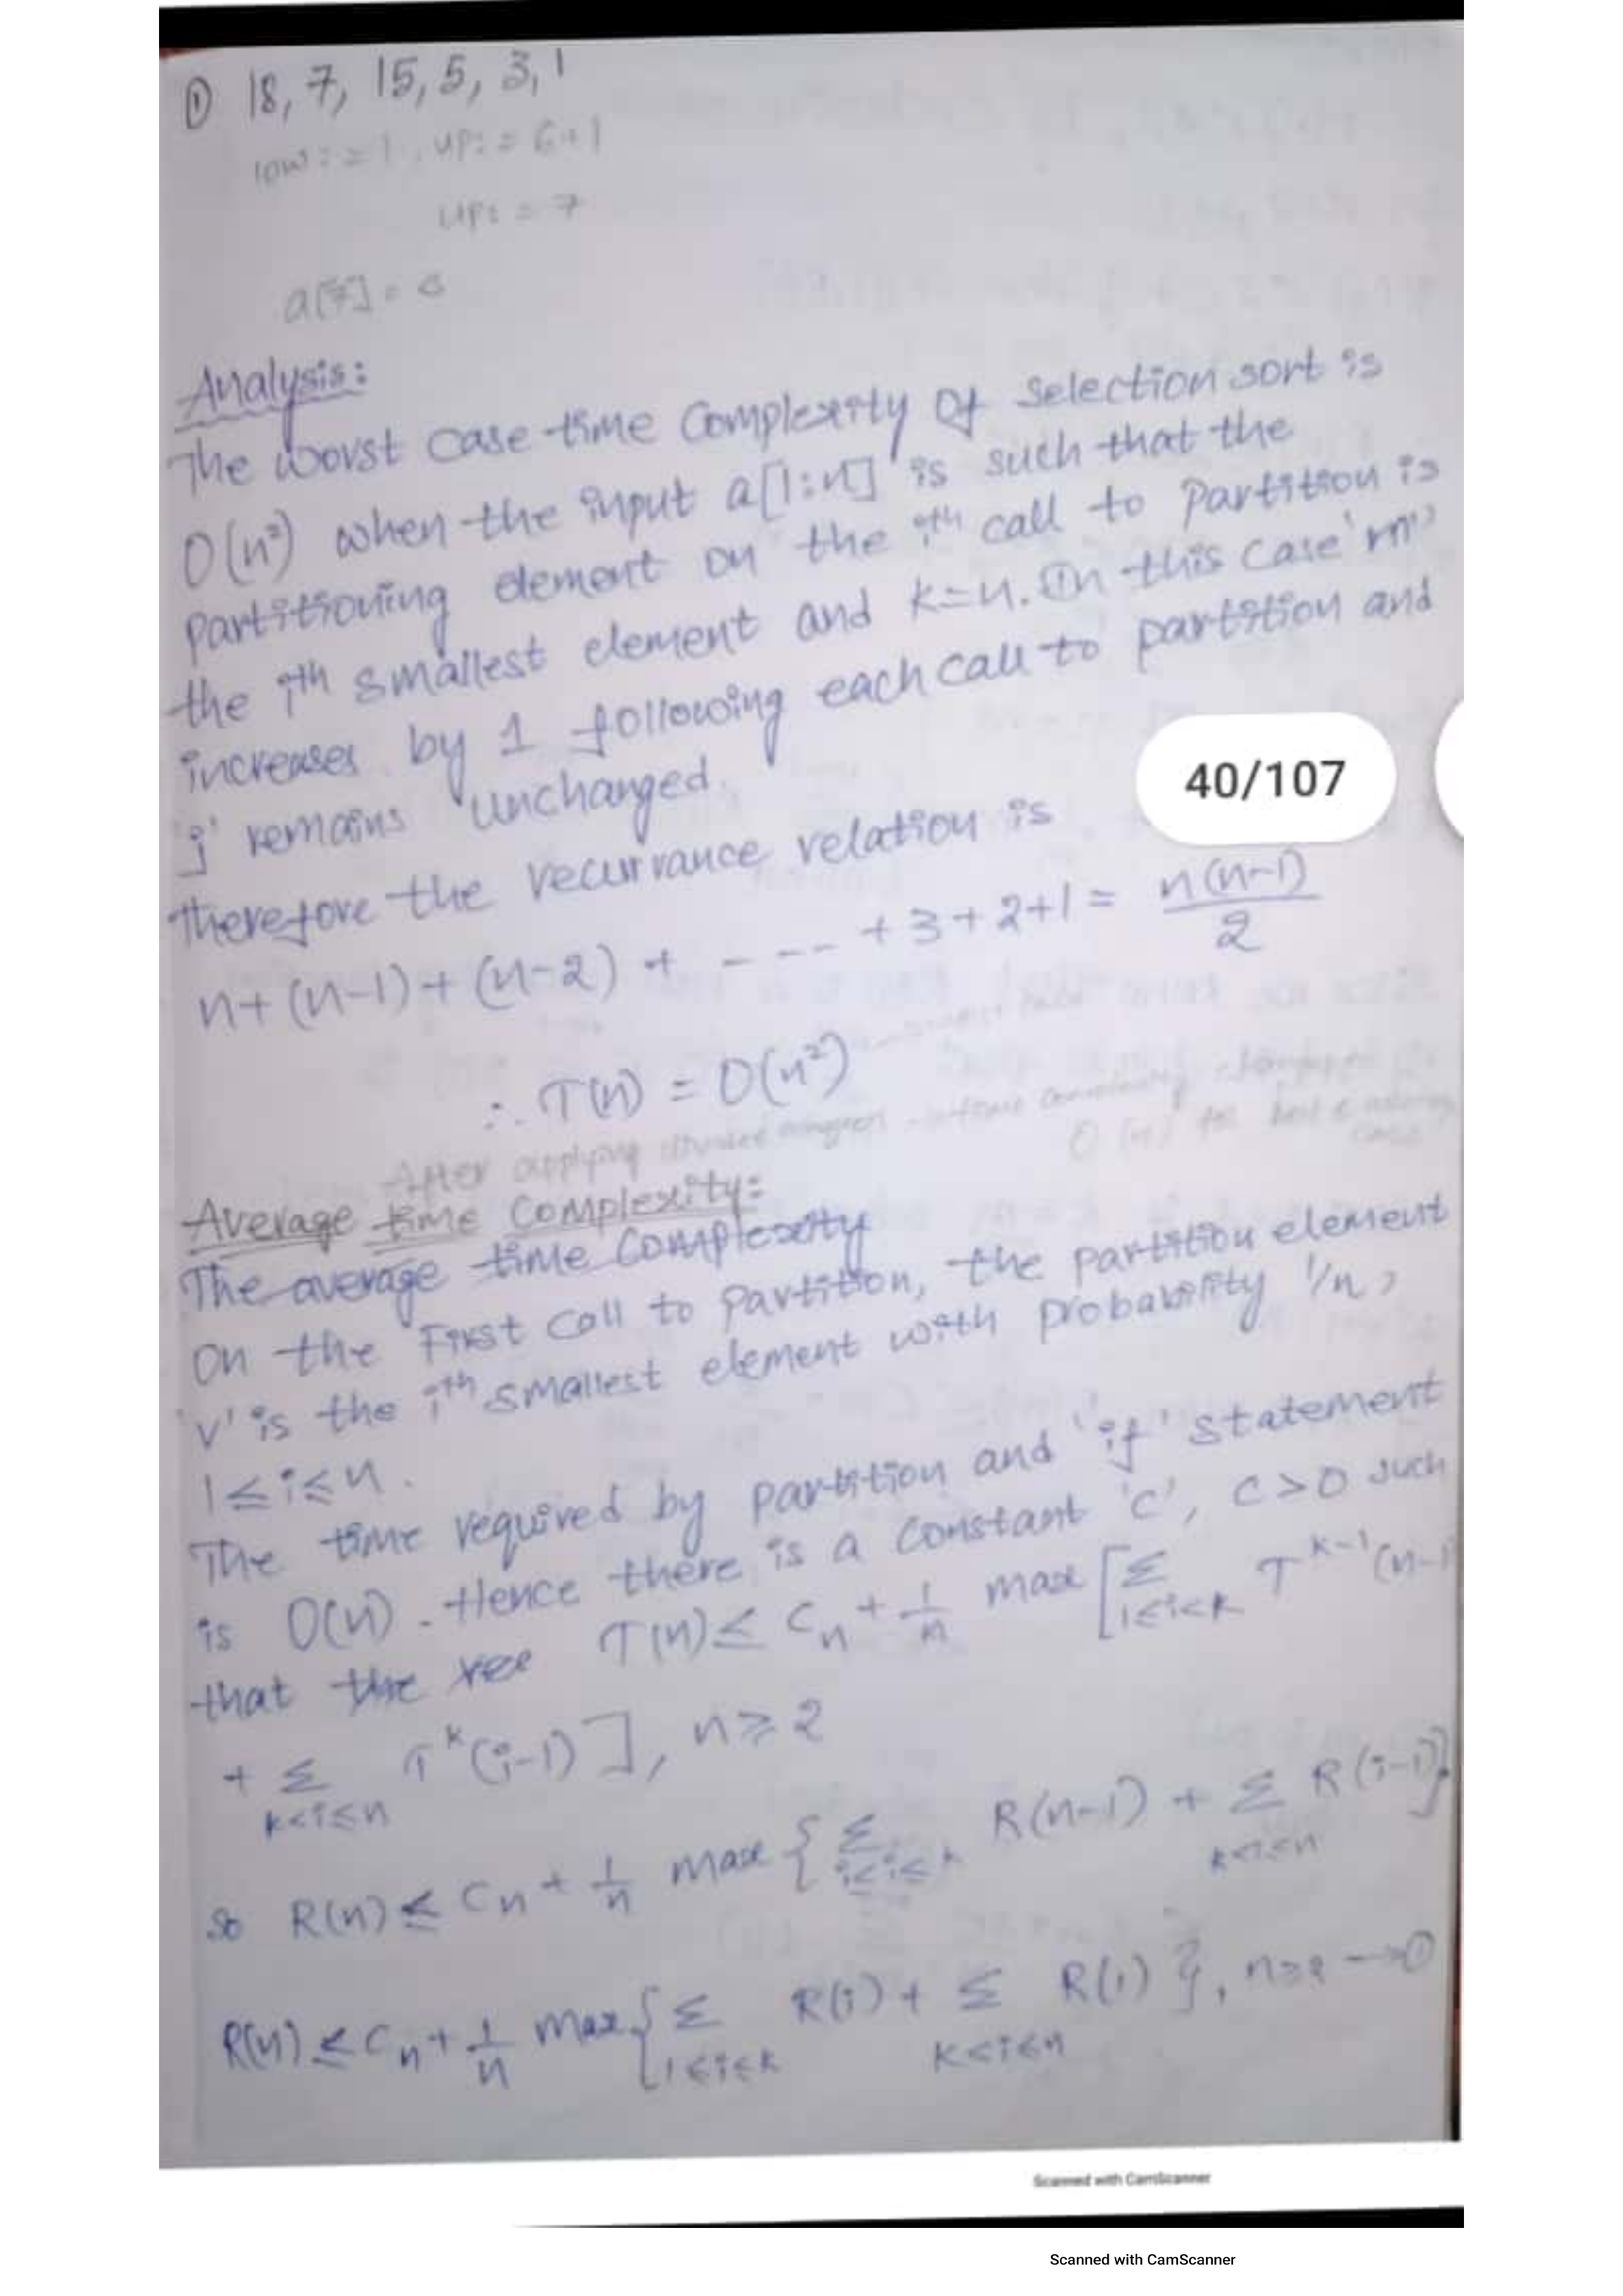 ① 18, 7, 15, 5, 3, 1
low := 1, up: = 6+1
up: = 7
a[7] = ∞
Analysis:
The worst case time complexity of selection sort is
O(n²) when the input a[1:n] is such that the
partitioning element on the iᵗʰ call to partition is
the iᵗʰ smallest element and k=n. In this case 'm'
increases by 1 following each call to partition and
'j' remains unchanged.
40/107
Therefore the recurrance relation is
n+(n-1)+(n-2) + ---- +3+2+1 = n(n-1)/2
∴ T(n) = O(n²)
After applying time complexity
O(n) for best & average
case
Average time complexity:
The average time complexity
On the First call to partition, the partition element
'v' is the iᵗʰ smallest element with probability 1/n,
1≤i≤n.
The time required by partition and 'if' statement
is O(n). Hence there is a constant 'c', c>0 such
that the rec T(n) ≤ Cn + 1/n max [Σ 1≤i<k T^k-1(n-1
+ Σ k<i≤n T^k(i-1)], n≥2
So R(n) ≤ Cn + 1/n max { Σ i≤i≤k R(n-1) + Σ k<i≤n R(i-1)}
R(n) ≤ Cn + 1/n max { Σ 1≤i≤k R(i) + Σ k<i≤n R(i) }, n≥2 →①
Scanned with CamScanner
Scanned with CamScanner